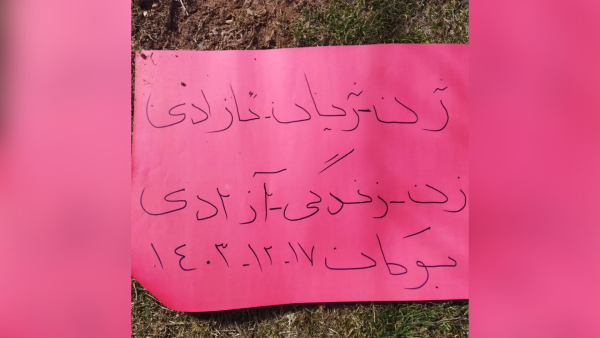 ژن-ژیان-ئازادی
زن-زندگی-آزادی
بوکان ۱۷-۱۲-۱۴۰۳